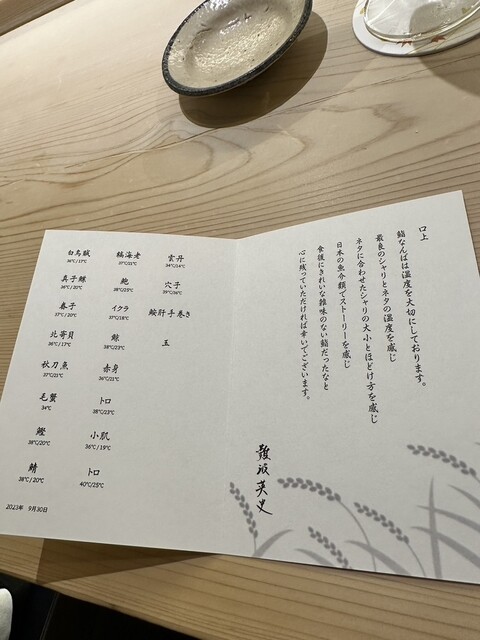 白烏賊
36℃/17℃
真子鰈
36℃/20℃
春子
37℃/20℃
北寄貝
36℃/17℃
秋刀魚
37℃/21℃
毛蟹
34℃
鰹
38℃/20℃
鯖
38℃/20℃
縞海老
37℃/21℃
鮑
38℃/25℃
イクラ
37℃/18℃
鯨
38℃/23℃
赤身
36℃/21℃
トロ
38℃/23℃
小肌
36℃/19℃
トロ
40℃/25℃
雲丹
34℃/14℃
穴子
39℃/36℃
鮟肝手巻き
玉
2023年 9月30日
口上
鮨なんばは温度を大切にしております。
最良のシャリとネタの温度を感じ
ネタに合わせたシャリの大小とほどけ方を感じ
日本の魚介類でストーリーを感じ
食後にきれいな雑味のない鮨だったなと
心に残っていただければ幸いでございます。
難波英史